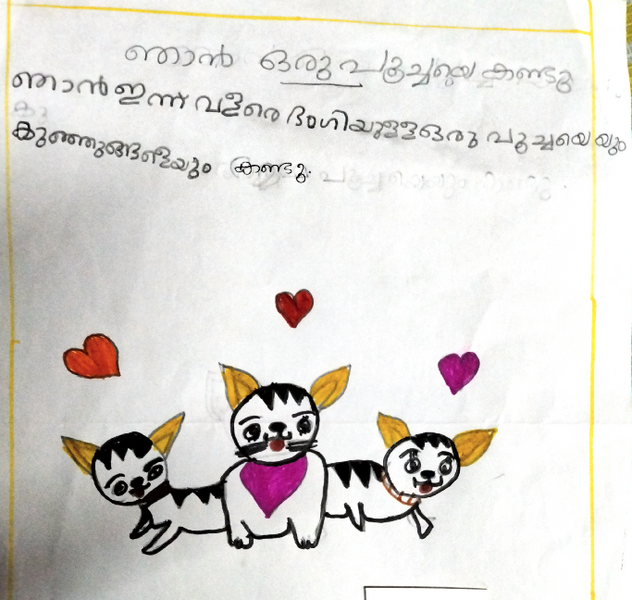 ഞാൻ ഒരു പൂച്ചയെ കണ്ടു
ഞാൻ ഇന്ന് വളരെ ഭംഗിയുള്ള ഒരു പൂച്ചയെയും
കുഞ്ഞുങ്ങളെയും കണ്ടു.